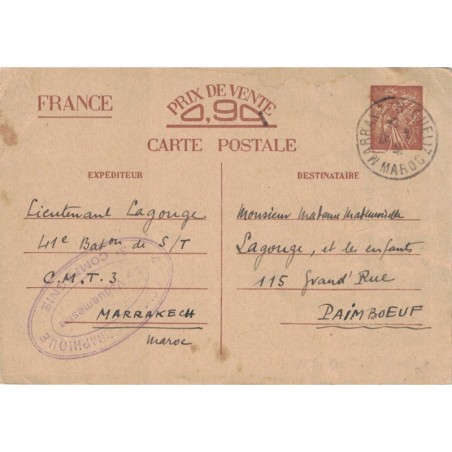 FRANCE
PRIX DE VENTE
0,90
CARTE POSTALE
EXPÉDITEUR
Lieutenant Lagouge
41e Baton de S/T
C.M.T.3
MARRAKECH
Maroc
DESTINATAIRE
Monsieur Madame Mademoiselle
Lagouge, et les enfants
115 Grand' Rue
PAIMBOEUF
MARRAKECH GUELIZ
MAROC
Vaguemestre